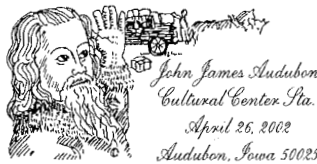 John James Audubon
Cultural Center Sta.
April 26, 2002
Audubon, Iowa 50025